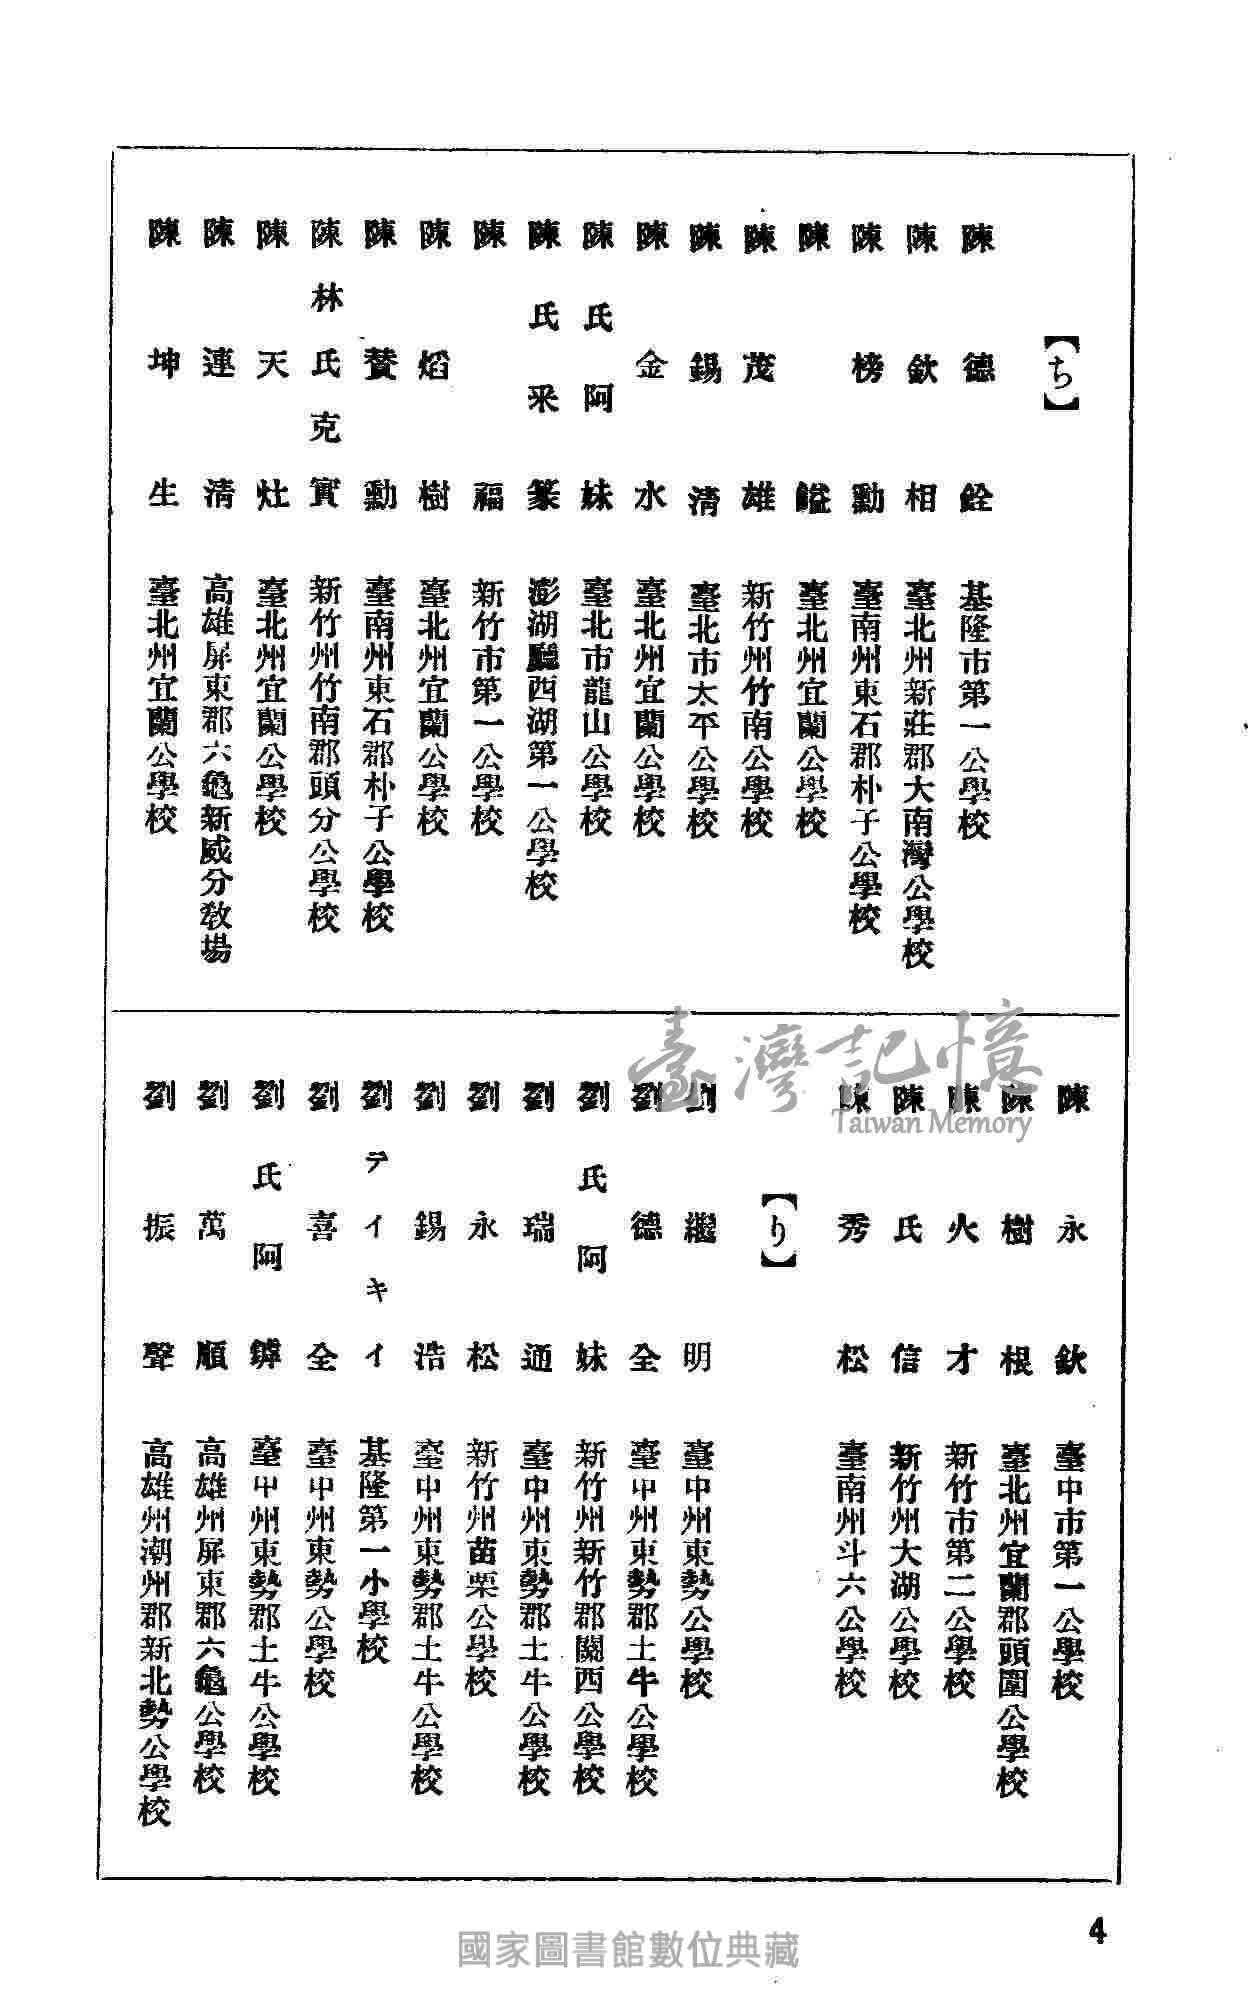 【ち】
陳德銓 基隆市第一公學校
陳欽相 臺北州新莊郡大南灣公學校
陳榜勳 臺南州東石郡朴子公學校
陳鎰 臺北州宜蘭公學校
陳茂雄 新竹州竹南公學校
陳錫清 臺北市太平公學校
陳金水 臺北州宜蘭公學校
陳氏阿妹 臺北市龍山公學校
陳氏釆篆 澎湖廳西湖第一公學校
陳福 新竹市第一公學校
陳熖樹 臺北州宜蘭公學校
陳贊勳 臺南州東石郡朴子公學校
陳林氏克實 新竹州竹南郡頭分公學校
陳天灶 臺北州宜蘭公學校
陳連清 高雄屏東郡六龜新威分教場
陳坤生 臺北州宜蘭公學校
陳永欽 臺中市第一公學校
陳樹根 臺北州宜蘭郡頭圍公學校
陳火才 新竹市第二公學校
陳氏信 新竹州大湖公學校
陳秀松 臺南州斗六公學校
【り】
劉繼明 臺中州東勢公學校
劉德全 臺中州東勢郡土牛公學校
劉氏阿妹 新竹州新竹郡關西公學校
劉瑞通 臺中州東勢郡土牛公學校
劉永松 新竹州苗栗公學校
劉錫浩 臺中州東勢郡土牛公學校
劉テイキイ 基隆第一小學校
劉喜全 臺中州東勢公學校
劉氏阿 臺中州東勢郡土牛公學校
劉萬順 高雄州屏東郡六龜公學校
劉振聲 高雄州潮州郡新北勢公學校
臺灣記憶
Taiwan Memory
4
國家圖書館數位典藏